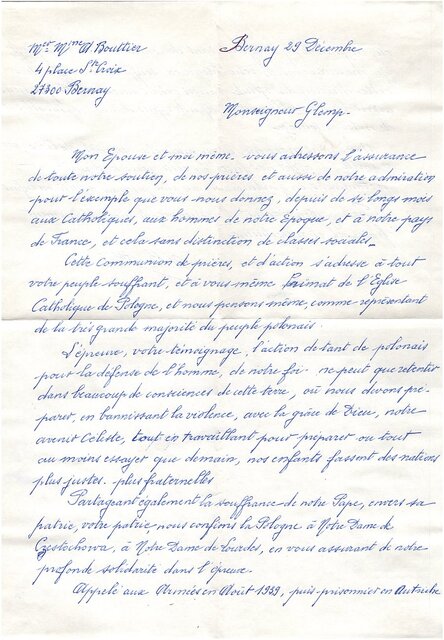 Mer Mme A Bouttier
4 place Ste Croix
27300 Bernay
Bernay 29 Décembre
Monseigneur Glemp.
Mon Epouse et moi même. vous adressons l'assurance
de toute notre soutien, de nos prières et aussi de notre admiration
pour l'exemple que vous nous donnez, depuis de si longs mois
aux Catholiques, aux hommes de notre Epoque, et à notre pays
de France, et cela sans distinction de classes sociales.
Cette communion de prières, et d'action s'adresse à tout
votre peuple souffrant, et à vous même Primat de l'Eglise
Catholique de Pologne, et nous pensons même, comme représentant
de la très grande majorité du peuple polonais.
L'épreuve, votre témoignage, l'action de tant de polonais
pour la défense de l'homme, de notre foi. ne peut que retentir
dans beaucoup de consciences de cette terre, où nous devons pré-
parer, en bannissant la violence, avec la grâce de Dieu, notre
avenir Céleste, tout en travaillant pour préparer ou tout
au moins essayer que demain, nos enfants fassent des nations
plus justes. plus fraternelles
Partageant également la souffrance de notre Pape, envers sa
patrie, votre patrie, nous confions la Pologne à Notre Dame de
Częstochowa, à Notre Dame de Lourdes, en vous assurant de notre
profonde solidarité dans l'épreuve.
Appelé aux Armées en Août 1939, puis prisonnier en Autriche